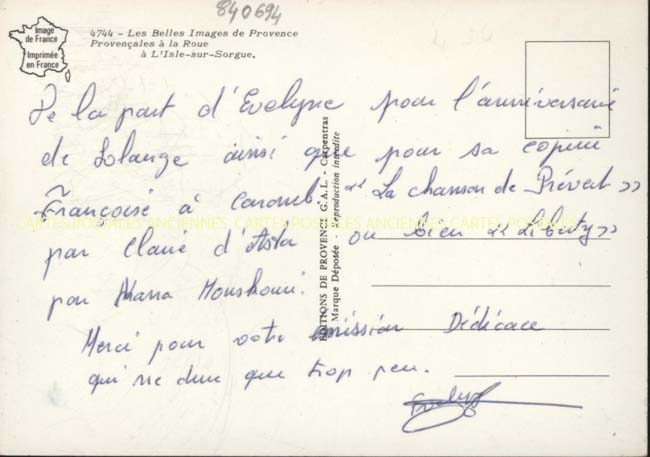 840694
Image
de France
Imprimée
en France
4744 - Les Belles Images de Provence
Provençales à la Roue
à L'Isle-sur-Sorgue.
De la part d'Evelyne pour l'anniversaire
de Solange ainsi que pour sa copine
Françoise à Caromb « La chanson de Prévert »
par Claire d'Asta ou bien « Liberty »
par Nana Mouskouri.
Merci pour votre émission Dédicace
qui ne dure que trop peu.
Evelyne
EDITIONS DE PROVENCE G.A.L. - Carpentras
Marque Déposée - Reproduction interdite
CARTES POSTALES ANCIENNES. CARTES POSTALES ANCIENNES. CARTES POSTALES